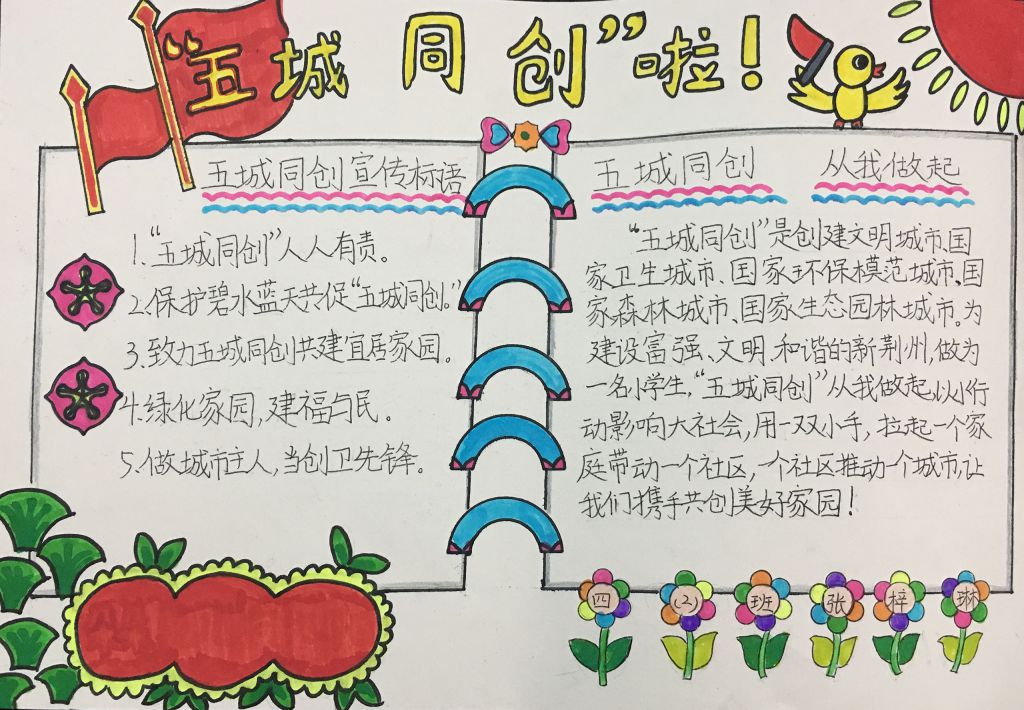 “五城同创”啦！
五城同创宣传标语
1.“五城同创”人人有责。
2.保护碧水蓝天共促“五城同创。”
3.致力五城同创共建宜居家园。
4.绿化家园,建福与民。
5.做城市主人,当创卫先锋。
五城同创 从我做起
“五城同创”是创建文明城市、国
家卫生城市、国家环保模范城市、国
家森林城市、国家生态园林城市。为
建设富强、文明、和谐的新荆州,做为
一名小学生,“五城同创”从我做起,以小行
动影响大社会,用一双小手,拉起一个家
庭带动一个社区,一个社区推动一个城市,让
我们携手共创美好家园！
四(2)班张梓琳